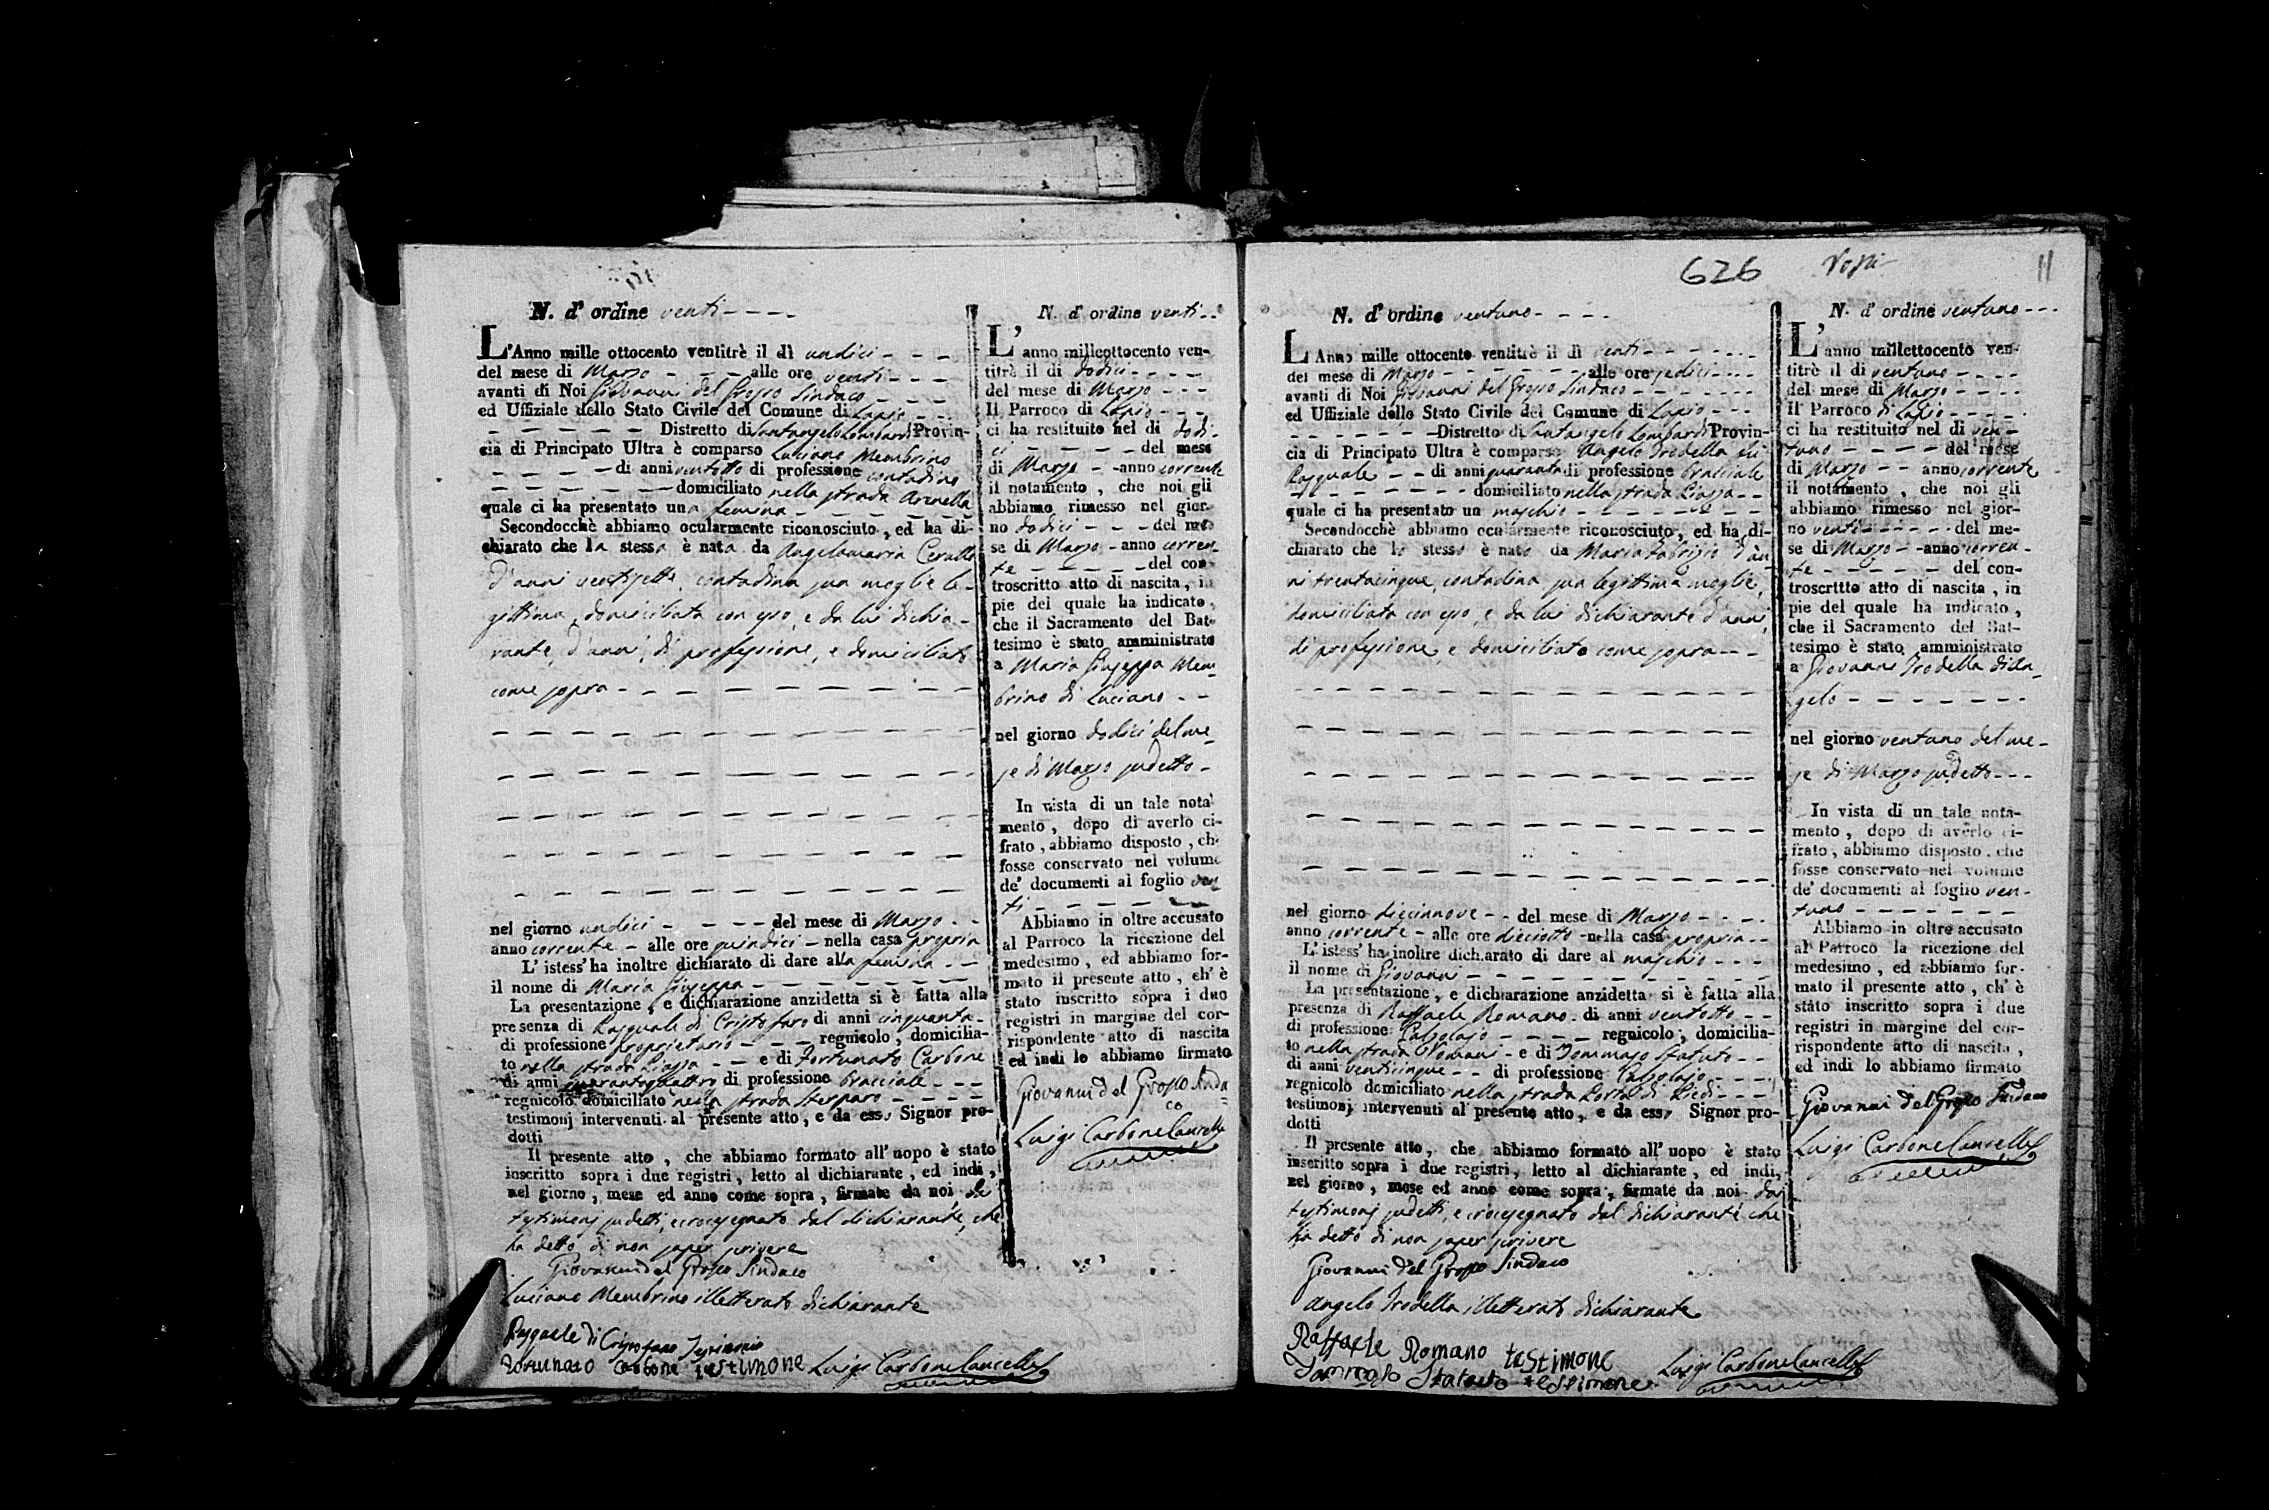 N. d' ordine venti
L'Anno mille ottocento ventitrè il dì undici
del mese di Marzo alle ore venti
avanti di Noi Giovanni del Grosso Sindaco
ed Uffiziale dello Stato Civile del Comune di Lapio
Distretto di Santangelo Lombardi Provin-
cia di Principato Ultra è comparso Luciano Membrino
di anni ventotto di professione contadino
domiciliato nella strada Arenella
quale ci ha presentato una femina
Secondocchè abbiamo ocularmente riconosciuto, ed ha di-
chiarato che la stessa è nata da Angelamaria
d'anni ventisette, contadina sua moglie le-
gittima, domiciliata con esso, e da lui dichia-
rante, d'anni, di professione, e domiciliato
come sopra
nel giorno undici del mese di Marzo
anno corrente alle ore quindici nella casa propria
L' istess' ha inoltre dichiarato di dare alla femina
il nome di Maria Giuseppa
La presentazione, e dichiarazione anzidetta si è fatta alla
presenza di Pasquale di Cristofaro di anni cinquanta
di professione proprietario regnicolo, domicilia-
to nella strada Piazza e di Fortunato Carbone
di anni quarantaquattro di professione bracciale
regnicolo domiciliato nella strada
testimonj intervenuti al presente atto, e da esso Signor pro-
dotti
Il presente atto, che abbiamo formato all' uopo è stato
inscritto sopra i due registri, letto al dichiarante, ed indi,
nel giorno, mese ed anno come sopra, firmate da noi da
testimonj sudetti, e crocesegnato dal dichiarante, che
ha detto di non saper scrivere
Giovanni del Grosso Sindaco
Luciano Membrino illetterato dichiarante
Pasquale di Cristofaro Testimonio
Fortunato Carbone testimone Luigi Carbone Cancelle
N. d' ordine venti
L' anno milleottocento ven-
titrè il di dodici
del mese di Marzo
Il Parroco di Lapio
ci ha restituito nel di dodi-
ci del mese
di Marzo anno corrente
il notamento, che noi gli
abbiamo rimesso nel gior-
no dodici del me-
se di Marzo anno corren-
te del con-
troscritto atto di nascita, in
pie del quale ha indicato,
che il Sacramento del Bat-
tesimo è stato amministrato
a Maria Giuseppa Mem-
brino di Luciano
nel giorno dodici del me-
se di Marzo sudetto
In vista di un tale nota-
mento, dopo di averlo ci-
frato, abbiamo disposto, che
fosse conservato nel volume
de' documenti al foglio ven-
ti
Abbiamo in oltre accusato
al Parroco la ricezione del
medesimo, ed abbiamo for-
mato il presente atto, ch' è
stato inscritto sopra i duo
registri in margine del cor-
rispondente atto di nascita
ed indi lo abbiamo firmato
Giovanni del Grosso Sinda
co
Luigi Carbone Cancelle
626
11
N. d' ordine ventuno
L'Anno mille ottocento ventitrè il di venti
del mese di Marzo alle ore sedici
avanti di Noi Giovanni del Grosso Sindaco
ed Uffiziale dello Stato Civile del Comune di Lapio
Distretto di Santangelo Lombardi Provin-
cia di Principato Ultra è comparso Angelo Trodella fu
Pasquale di anni quaranta di professione bracciale
domiciliato nella strada Piazza
quale ci ha presentato un maschio
Secondocchè abbiamo ocularmente riconosciuto, ed ha di-
chiarato che lo stesso è nato da Maria Fabrizio d'an-
ni trentacinque, contadina sua legittima moglie,
domiciliata con esso, e da lui dichiarante d'anni,
di professione, e domiciliato come sopra
nel giorno diecinnove del mese di Marzo
anno corrente alle ore dieciotto nella casa propria
L' istess' ha inoltre dichiarato di dare al maschio
il nome di Giovanni
La presentazione, e dichiarazione anzidetta si è fatta alla
presenza di Raffaele Romano di anni ventotto
di professione Calzolajo regnicolo, domicilia-
to nella strada Romani e di Tommaso Statuto
di anni venticinque di professione Calzolajo
regnicolo domiciliato nella strada Porta di Piedi
testimonj intervenuti al presente atto, e da esso Signor pro-
dotti
Il presente atto, che abbiamo formato all' uopo è stato
inscritto sopra i due registri, letto al dichiarante, ed indi,
nel giorno, mese ed anno come sopra, firmate da noi da
testimonj sudetti, e crocesegnato dal dichiarante che
ha detto di non saper scrivere
Giovanni del Grosso Sindaco
Angelo Trodella illetterato dichiarante
Raffaele Romano testimone
Tommaso Statuto testimone Luigi Carbone Cancelle
N. d' ordine ventuno
L' anno millettocento ven-
titrè il di ventuno
del mese di Marzo
Il Parroco di Lapio
ci ha restituito nel di ven-
tuno del mese
di Marzo anno corrente
il notamento, che noi gli
abbiamo rimesso nel gior-
no venti del me-
se di Marzo anno corren-
te del con-
troscrttto atto di nascita, in
pie del quale ha indicato,
che il Sacramento del Bat-
tesimo è stato amministrato
a Giovanni Trodella di An-
gelo
nel giorno ventuno del me-
se di Marzo sudetto
In vista di un tale nota-
mento, dopo di averlo ci-
frato, abbiamo disposto, che
fosse conservato nel volume
de' documenti al foglio ven-
tuno
Abbiamo in oltre accusato
al Parroco la ricezione del
medesimo, ed abbiamo for-
mato il presente atto, ch' è
stato inscritto sopra i due
registri in margine del cor-
rispondente atto di nascita,
ed indi lo abbiamo firmato
Giovanni del Grosso Sindaco
Luigi Carbone Cancelle